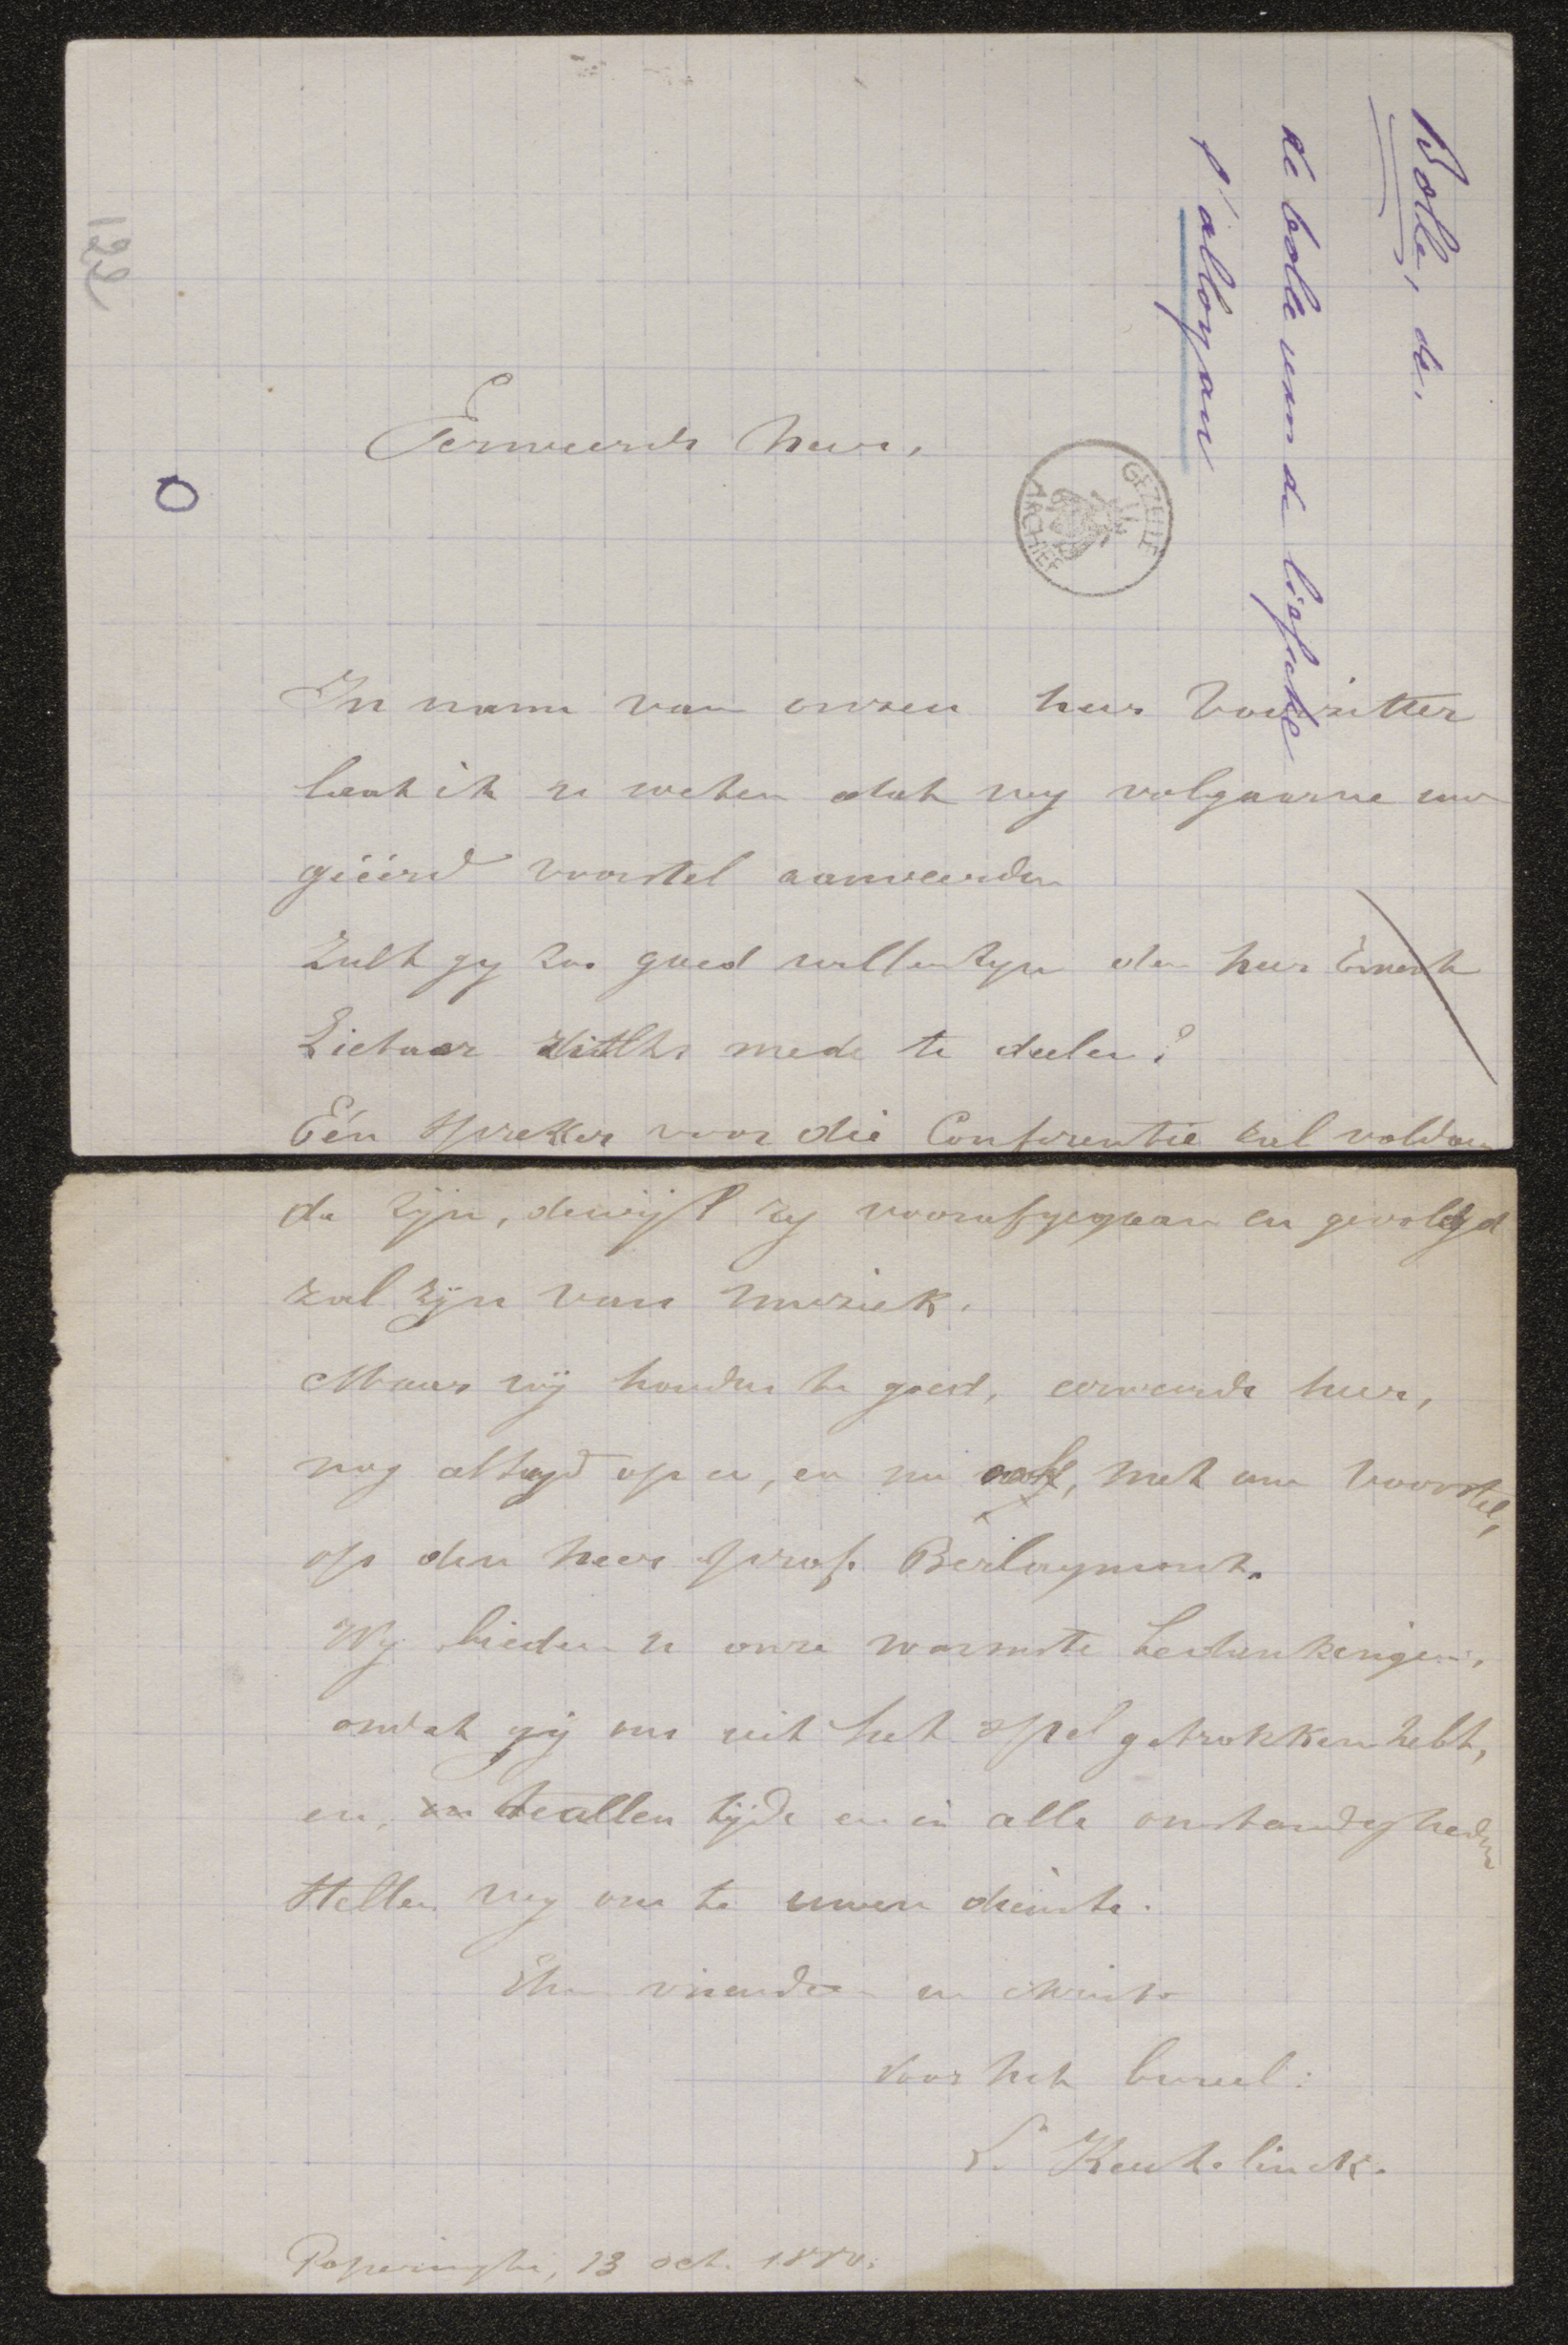 Bolle, de.
de bolle van de liefde
t' allogan
122
GEZELLE
ARCHIEF
Eerweerde heer,
In name van onzen heer Voorzitter
laat ik u weten dat wy volgaarne uw
geëerd voorstel aanveerden
Zult gy zoo goed willen zyn den heer Ernest
Lietaer zulks mede te deelen?
Eén spreker voor die Conferentie zal voldoen
de zijn, dewijl zy voorafgegaan en gevolgd
zal zijn van muziek.
Maar wij houden te goed, eerweerde heer,
nog altyd op u, en nu ook, met uw voorstel,
op den heer prof. Berlaymont.
Wy bieden u onze warmste bedankingen,
omdat gij ons uit het spel getrokken hebt,
en, te allen tijde en in alle omstandigheden
stellen wy ons te uwen dienste.
Uw vrienden in Christo
Voor het bureel:
L. Keuhelinck.
Poperinghe, 13 oct. 1880.